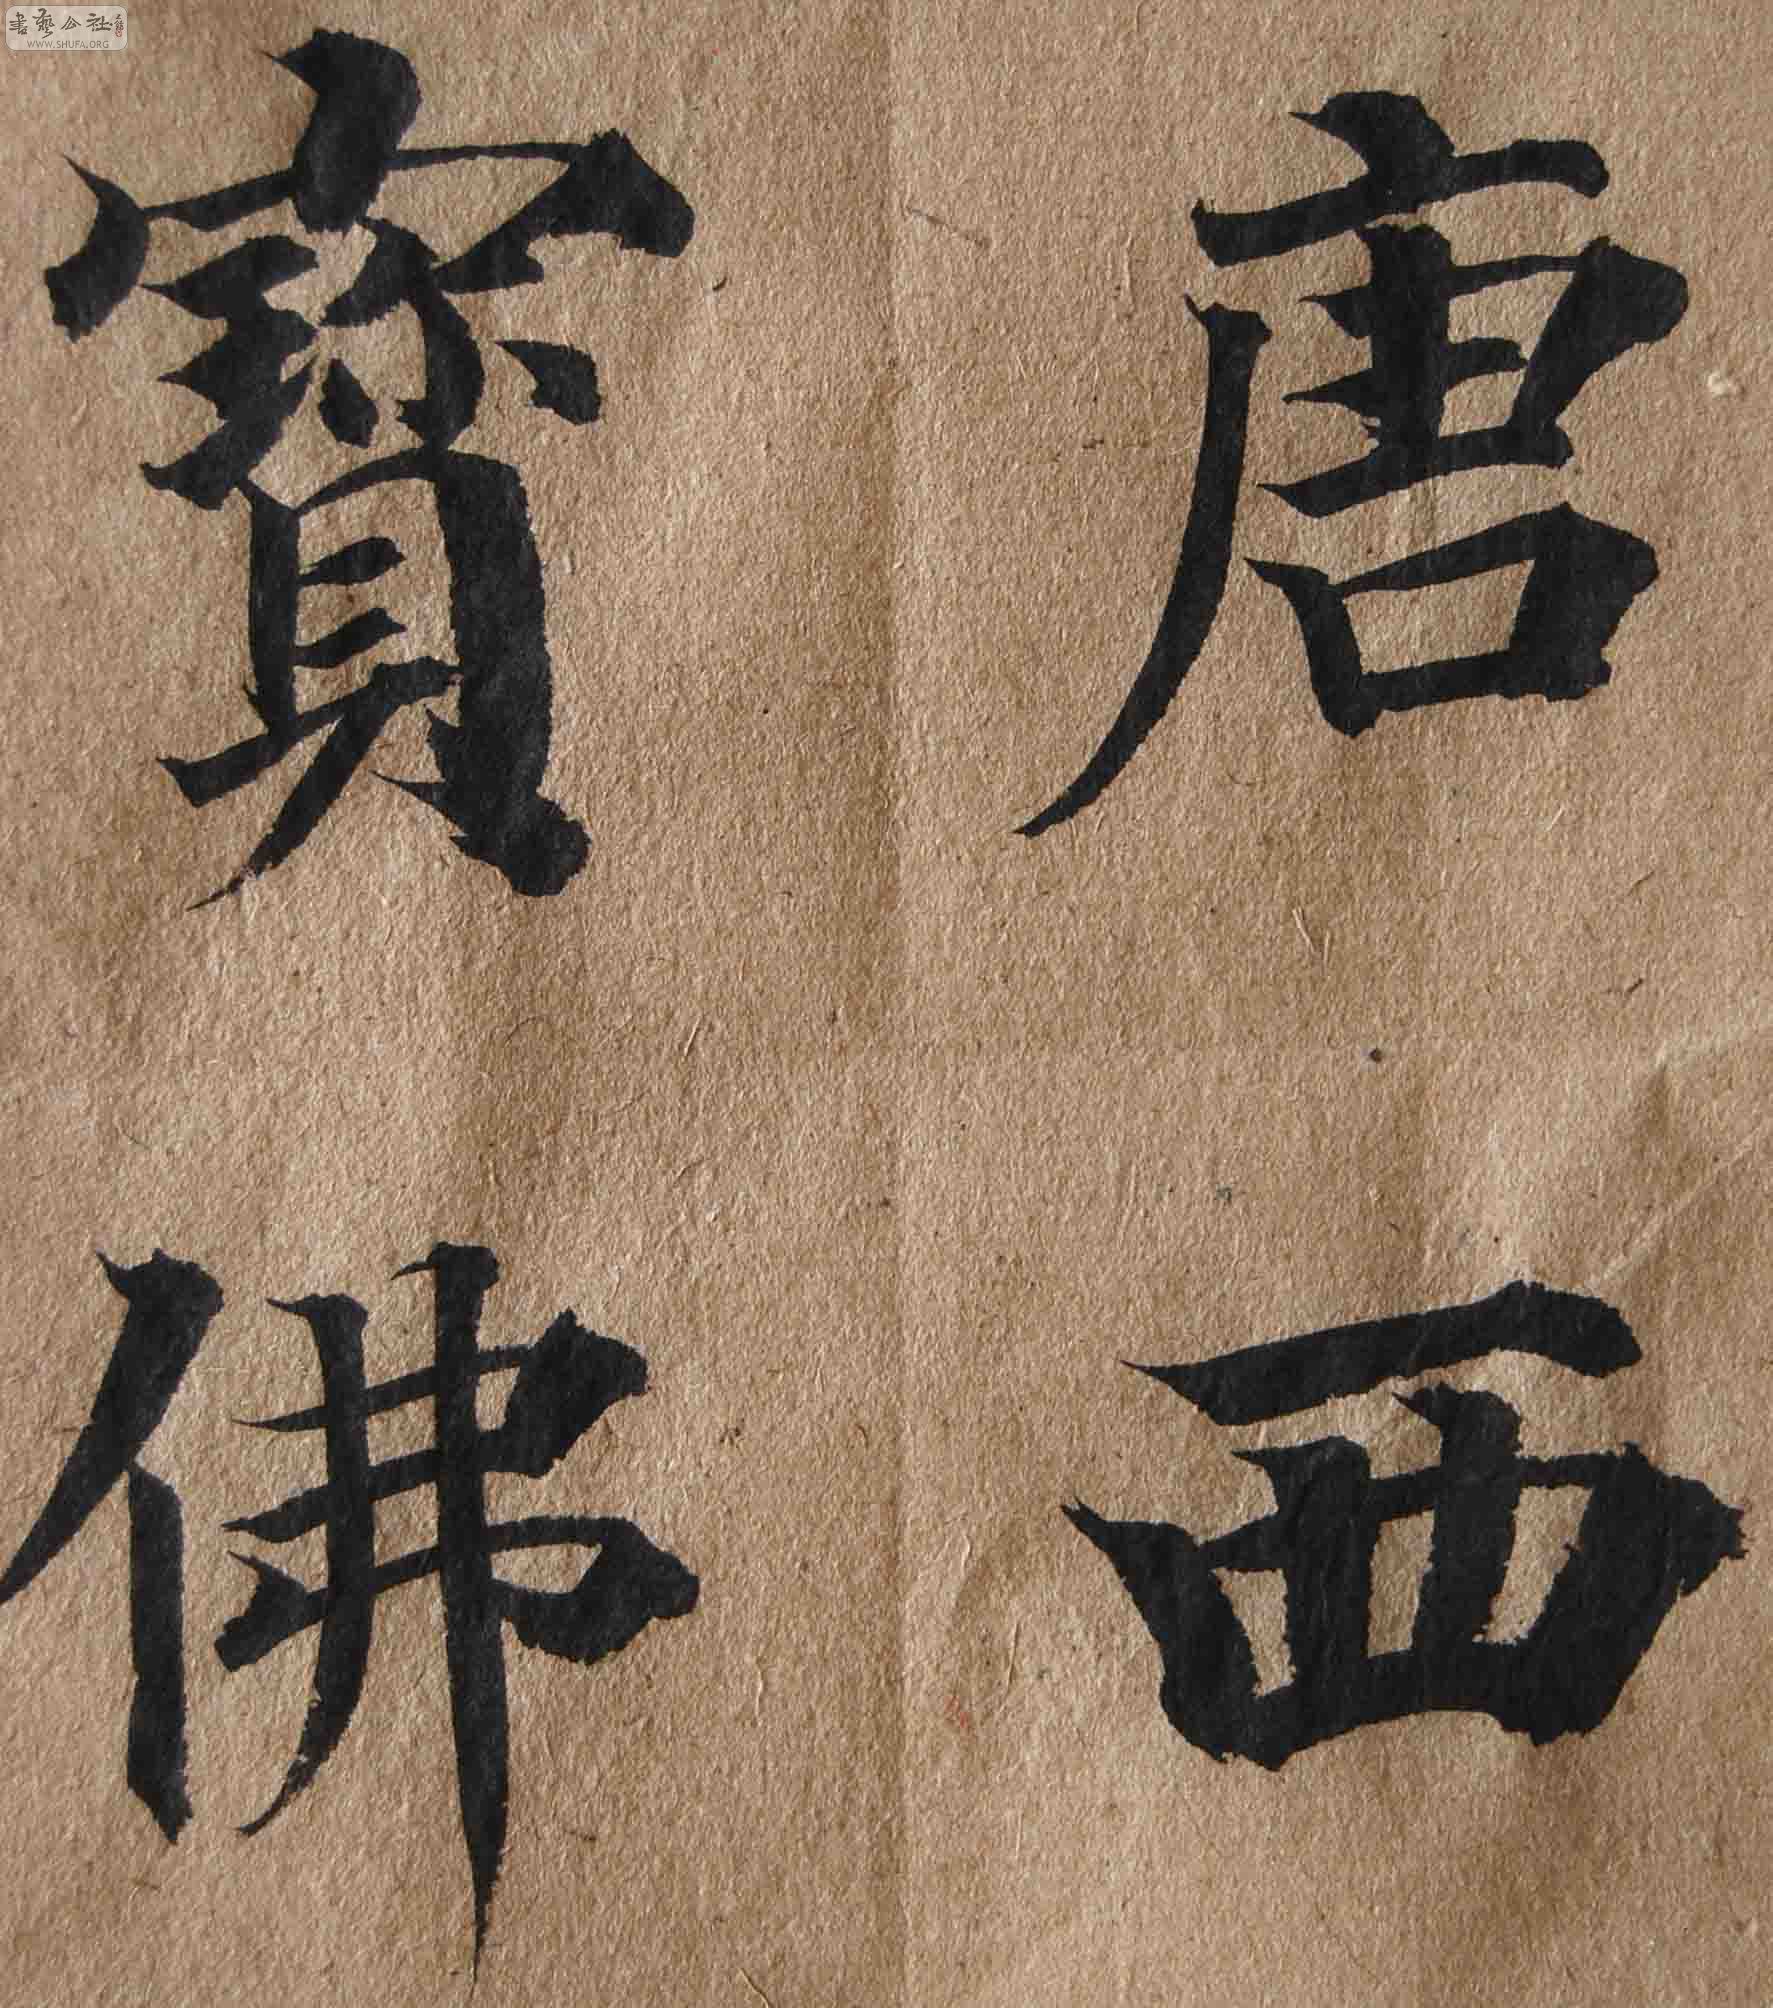 唐西
寶佛
書藝公社
WWW.SHUFA.ORG